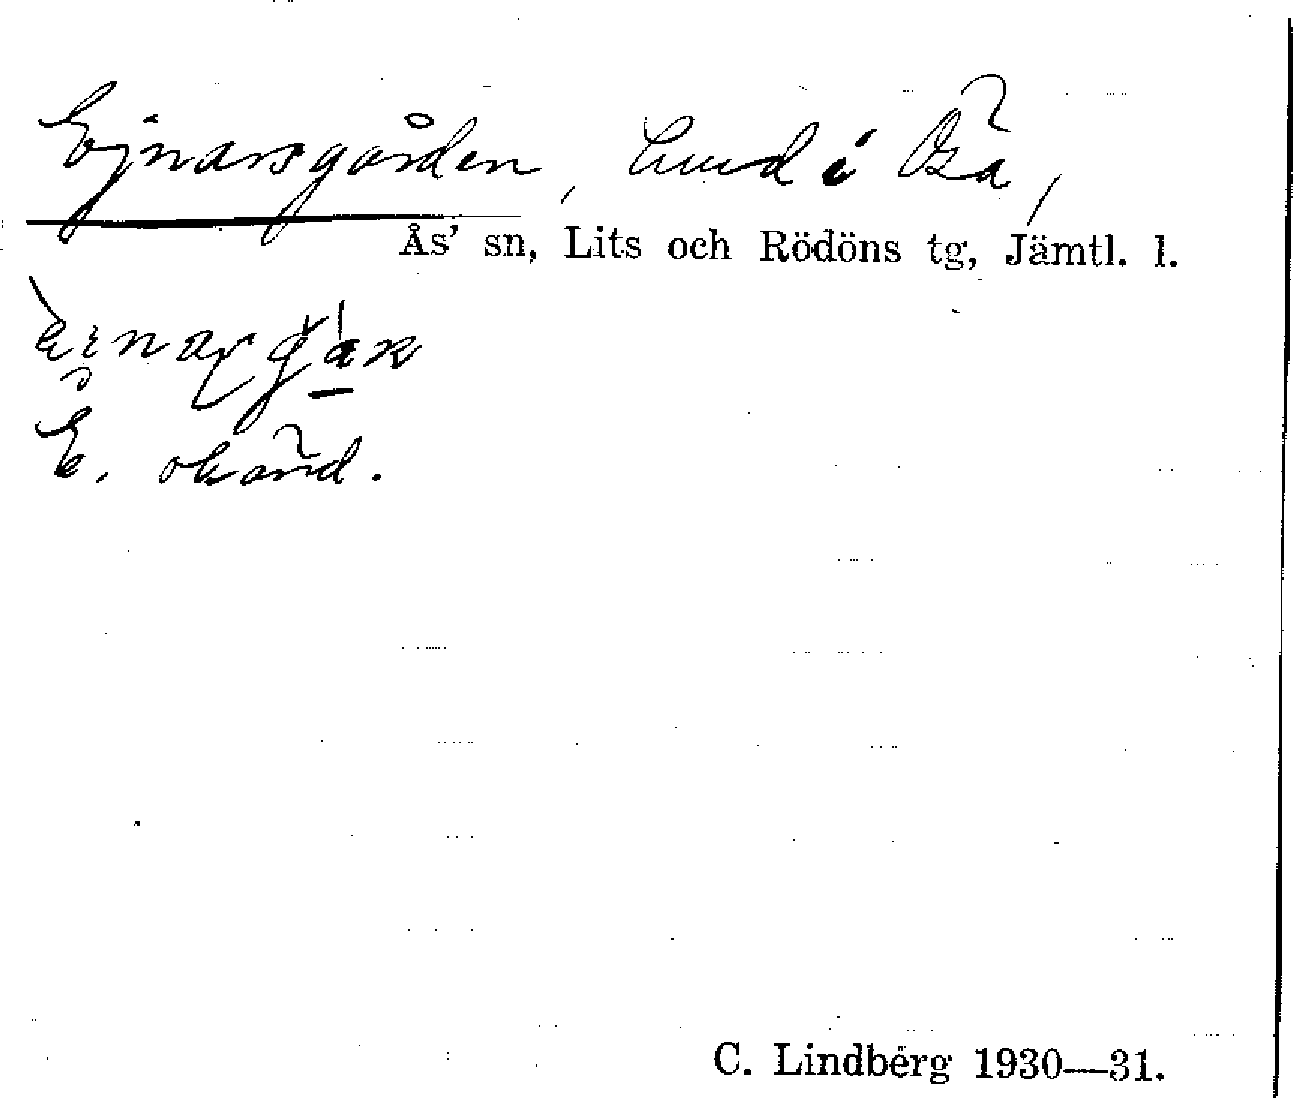 Ejnarsgården, Lund i
Ås' sn, Lits och Rödöns tg, Jämtl. l.
E. okänd.
C. Lindberg 1930—31.